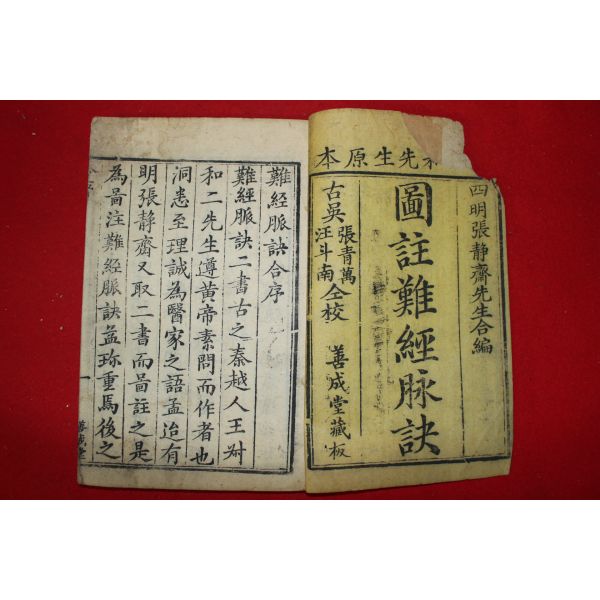 先生原本
四明張静齋先生合編
圖註難經脉訣
古吳張青萬汪斗南仝校
善成堂藏板
難經脈訣合序
難經脈訣二書古之秦越人王叔
和二先生遵黄帝素問而作者也
洞悉至理誠為醫家之語孟迨有
明張静齋又取二書而啚註之是
為啚注難經脈訣益珎重焉後之
一
善成堂